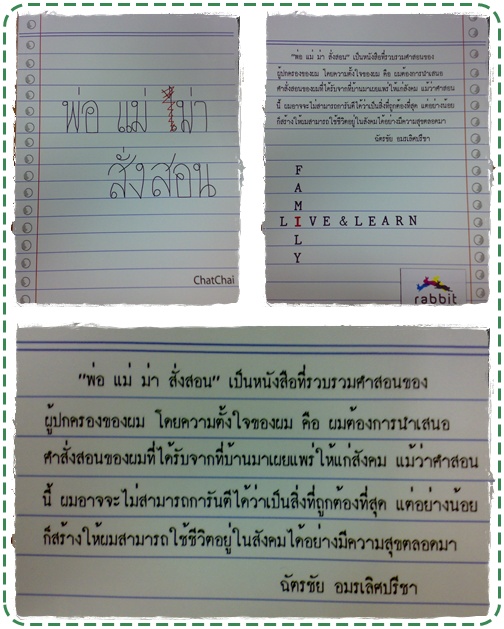 พ่อ แม่ ม่า
สั่งสอน
ChatChai
"พ่อ แม่ ม่า สั่งสอน" เป็นหนังสือที่รวบรวมคำสอนของ
ผู้ปกครองของผม โดยความตั้งใจของผม คือ ผมต้องการนำเสนอ
คำสั่งสอนของผมที่ได้รับจากที่บ้านมาเผยแพร่ให้แก่สังคม แม้ว่าคำสอน
นี้ ผมอาจจะไม่สามารถการันตีได้ว่าเป็นสิ่งที่ถูกต้องที่สุด แต่อย่างน้อย
ก็สร้างให้ผมสามารถใช้ชีวิตอยู่ในสังคมได้อย่างมีความสุขตลอดมา
ฉัตรชัย อมรเลิศปรีชา
F
A
M
LIVE & LEARN
L
Y
rabbit
"พ่อ แม่ ม่า สั่งสอน" เป็นหนังสือที่รวบรวมคำสอนของ
ผู้ปกครองของผม โดยความตั้งใจของผม คือ ผมต้องการนำเสนอ
คำสั่งสอนของผมที่ได้รับจากที่บ้านมาเผยแพร่ให้แก่สังคม แม้ว่าคำสอน
นี้ ผมอาจจะไม่สามารถการันตีได้ว่าเป็นสิ่งที่ถูกต้องที่สุด แต่อย่างน้อย
ก็สร้างให้ผมสามารถใช้ชีวิตอยู่ในสังคมได้อย่างมีความสุขตลอดมา
ฉัตรชัย อมรเลิศปรีชา